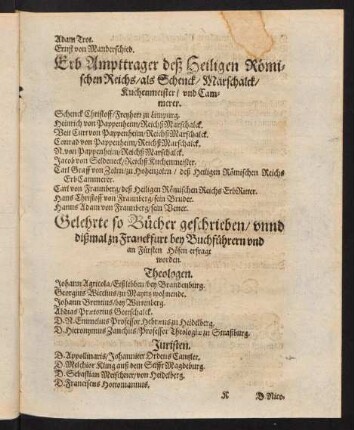 Adam Trot.
Ernst von Manderschied.
Erb Ampttrager deß Heiligen Römi-
schen Reichs/als Schenck/Marschalck/
Kuchenmeister/vnd Cam-
merer.
Schenck Christoff/Freyherr zu Limpurg.
Heinrich von Pappenheim/Reichß Marschalck.
Veit Curt von Pappenheim/Reichß Marschalck.
Conrad von Pappenheim/Reichß Marschalck.
N. von Pappenheim/Reichß Marschalck.
Jacob von Seldeneck/Reichß Kuchenmeister.
Carl Graff von Zolen/zu Hohenzolen/ deß Heiligen Römischen Reichs
Erb Cammerer.
Carl von Framberg/deß Heiligen Römischen Reichs ErbRitter.
Hans Christoff von Framberg/sein Bruder.
Hanns Adam von Framberg/sein Vetter.
Gelehrte so Bücher geschrieben/vnnd
dißmal zu Franckfurt bey Buchführern vnd
an Fürsten Höfen erfragt
worden.
Theologen.
Johann Agricola/Eißleben/bey Brandenburg.
Georgius Wicelius/zu Mayntz wohnende.
Johann Brentius/bey Wirtenberg.
Abdias Pretorius Gotschalck.
D. N. Emmeius Professor Hebreus zu Heidelberg.
D. Hieronymus Zanchius/Professer Theologiæ zu Straßburg.
Juristen.
D. Appollinaris/Johanniter Ordens Cantzler.
D. Melchior Kling auß dem Stifft Magdeburg.
D. Sebastian Meischner/von Heidelberg.
D. Franciscus Hotomannus.
K D. Nico-